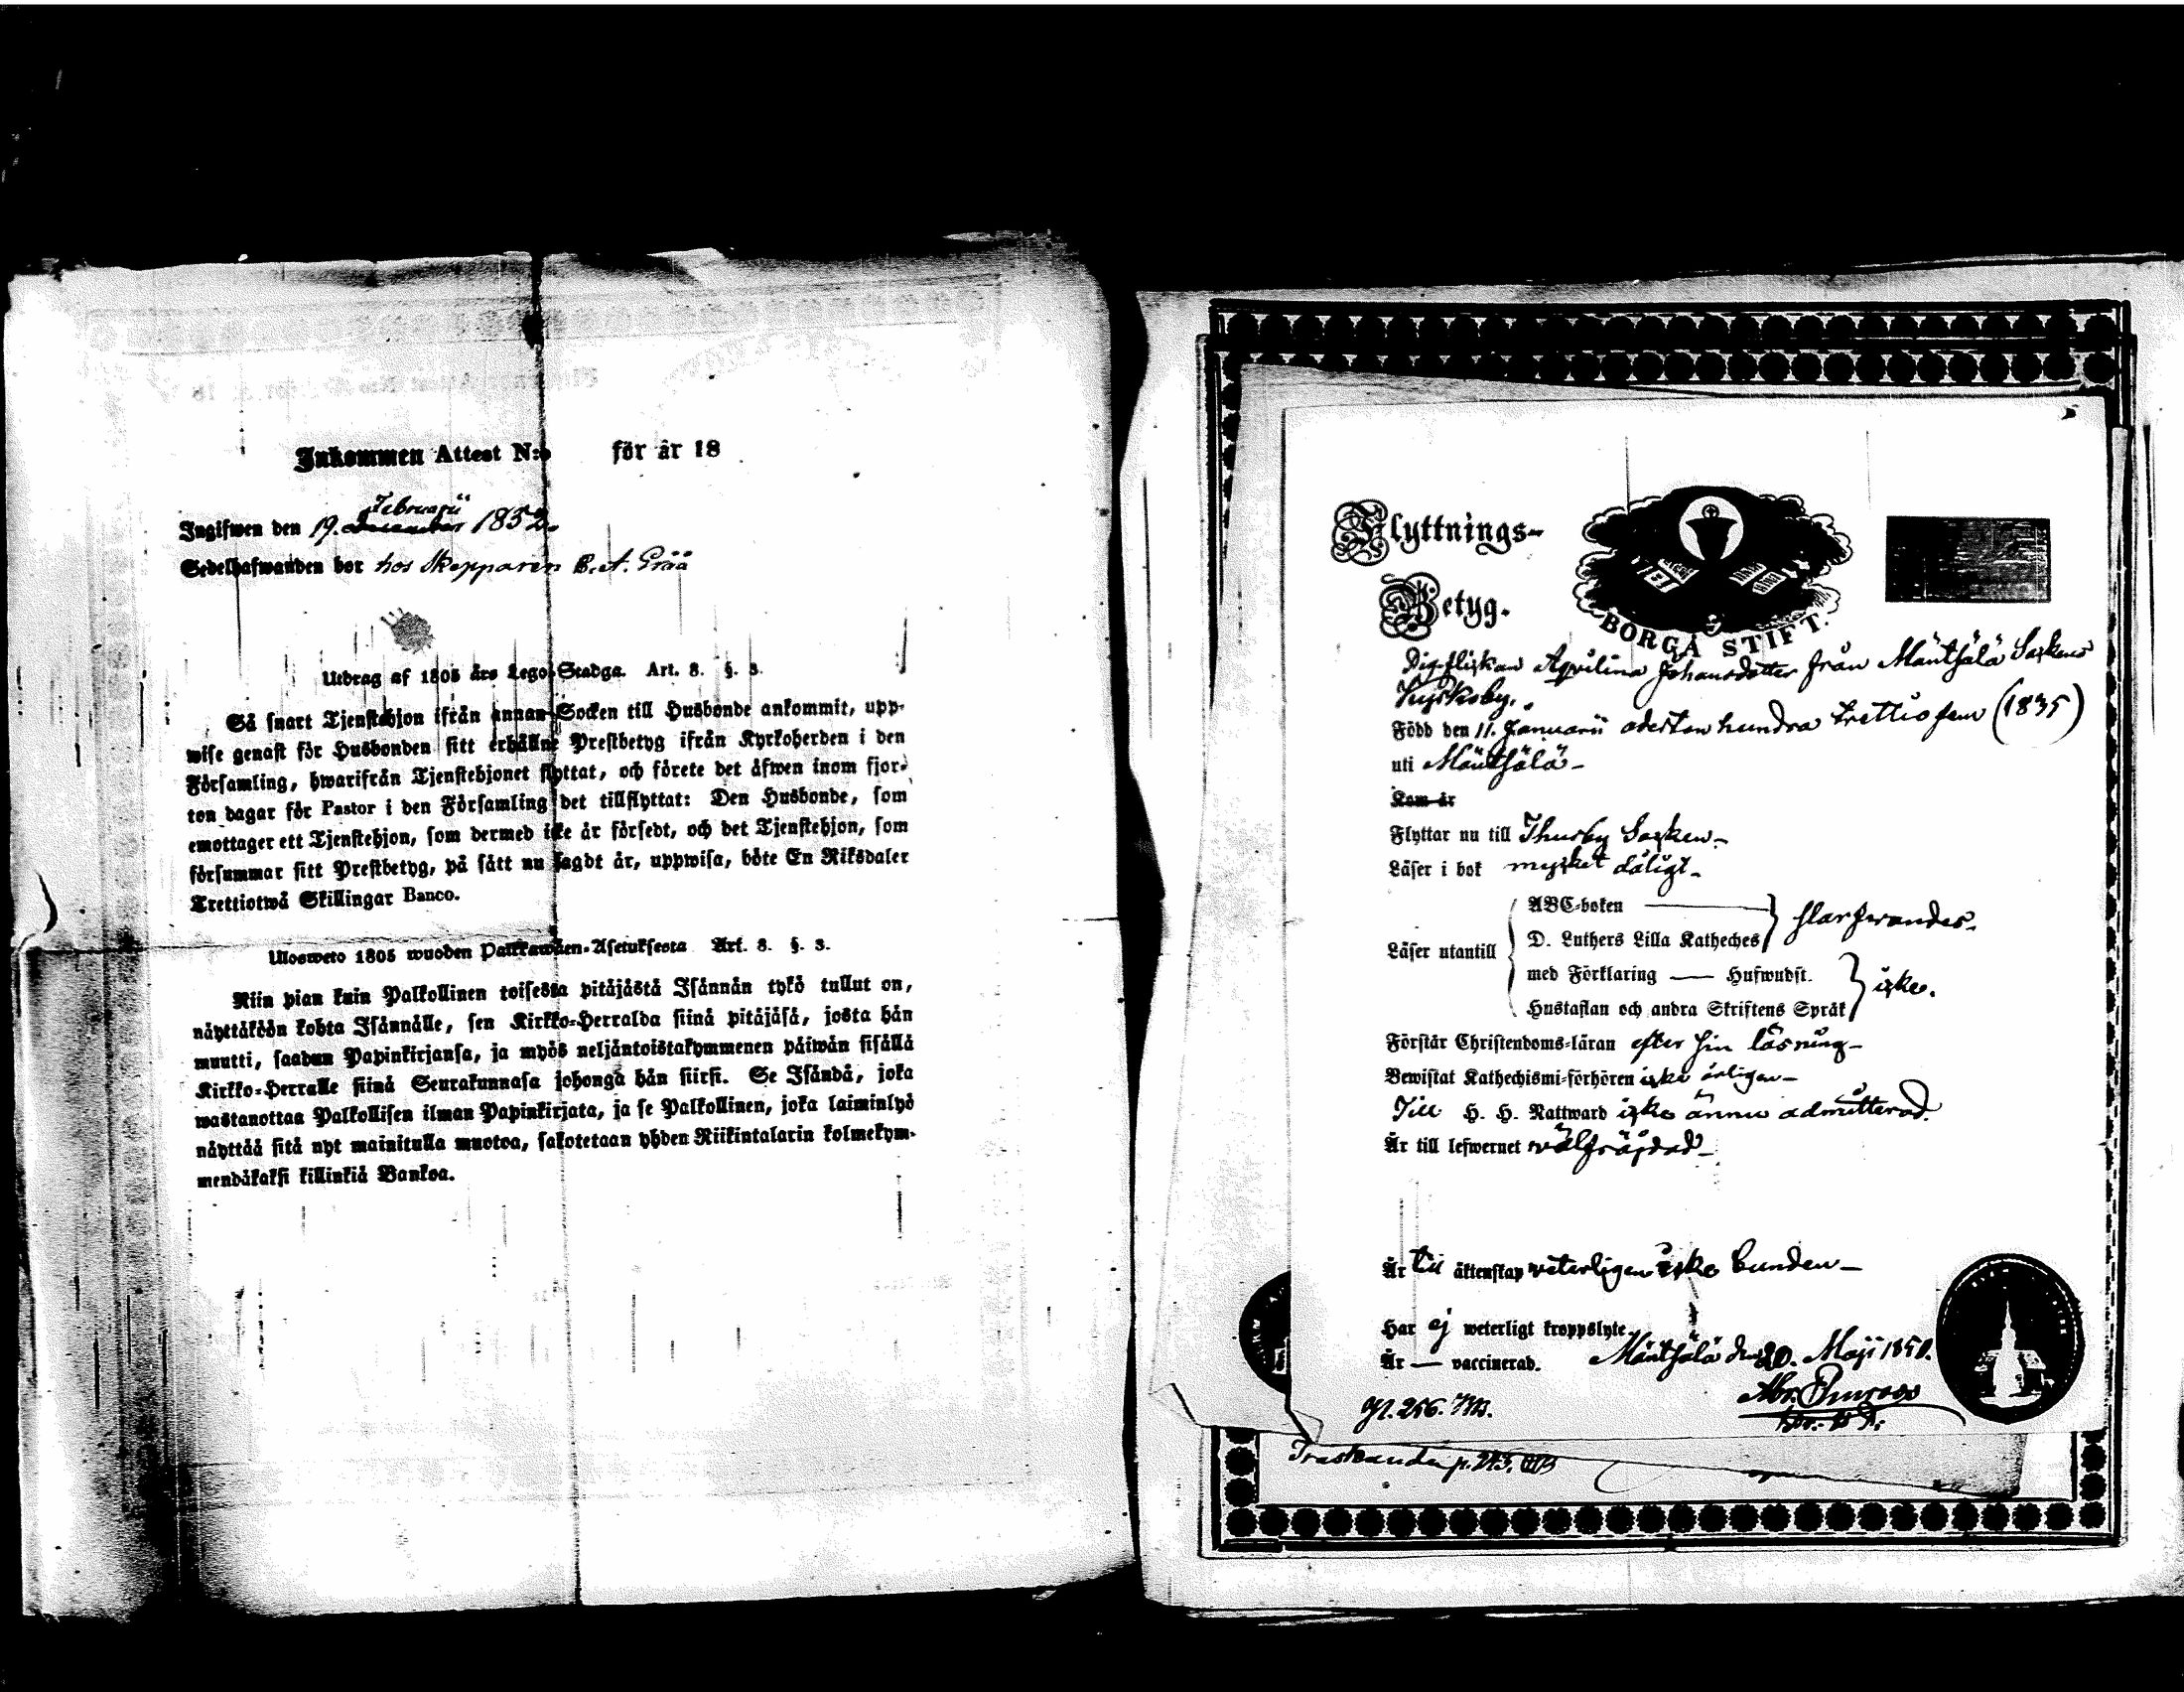 Inkommen Attest N:o för år 18
Ingifwen den 19. Februarii 1852.
Sedelhafwanden bor hos Skepparen B. A. Grää
Utdrag af 1805 års Lego-Stadga. Art. 8. §. 3.
Så snart Tjenstehjon ifrån annan Socken till Husbonde ankommit, upp-
wise genast för Husbonden sitt erhållne Prestbetyg ifrån Kyrkoherden i den
Församling, hwarifrån Tjenstehjonet flyttat, och förete det äfwen inom fjor-
ton dagar för Pastor i den Församling det tillflyttat: Den Husbonde, som
emottager ett Tjenstehjon, som dermed icke är försedt, och det Tjenstehjon, som
försummar sitt Prestbetyg, på sätt nu sagdt är, uppwisa, böte En Riksdaler
Trettiotwå Skillingar Banco.
Ulosweto 1805 wuoden Palkkawäen-Asetuksesta Art. 8. §. 3.
Niin pian kuin Palkollinen toisesta pitäjästä Isännän tykö tullut on,
näyttäköön kohta Isännälle, sen Kirkko-Herralda siinä pitäjäsä, josta hän
muutti, saadun Papinkirjansa, ja myös neljäntoistakymmenen päiwän sisällä
Kirkko-Herralle siinä Seurakunnasa johonga hän siirsi. Se Isändä, joka
wastanottaa Palkollisen ilman Papinkirjata, ja se Palkollinen, joka laiminlyö
näyttää sitä nyt mainitulla muotoa, sakotetaan yhden Riikintalarin kolmekym-
mendäkaksi killinkiä Bankoa.
Flyttnings-
Betyg.
BORGÅ STIFT.
Pigflickan Aqvilina Johansdotter från Mäntsälä Sockens
Född den 11. Januarii aderton hundra trettiofem (1835)
uti Mäntsälä-
Kom år
Flyttar nu till Thusby Socken-
Läser i bok mycket dåligt-
ABC-boken
Läser utantill D. Luthers Lilla Katheches slarfwandes.
med Förklaring — Hufwudst.
Hustaflan och andra Skriftens Språk icke.
Förstår Christendoms-läran efter sin läsning-
Bewistat Kathechismi-förhören icke årligen-
Till H. H. Nattward icke ännu admitterad.
Är till lefwernet välfräjdad-
Är till äktenskap veterligen icke bunden-
Har ej weterligt kroppslyte.
Är — vaccinerad. Mäntsälä den 20. Maji 1850.
p. 245.